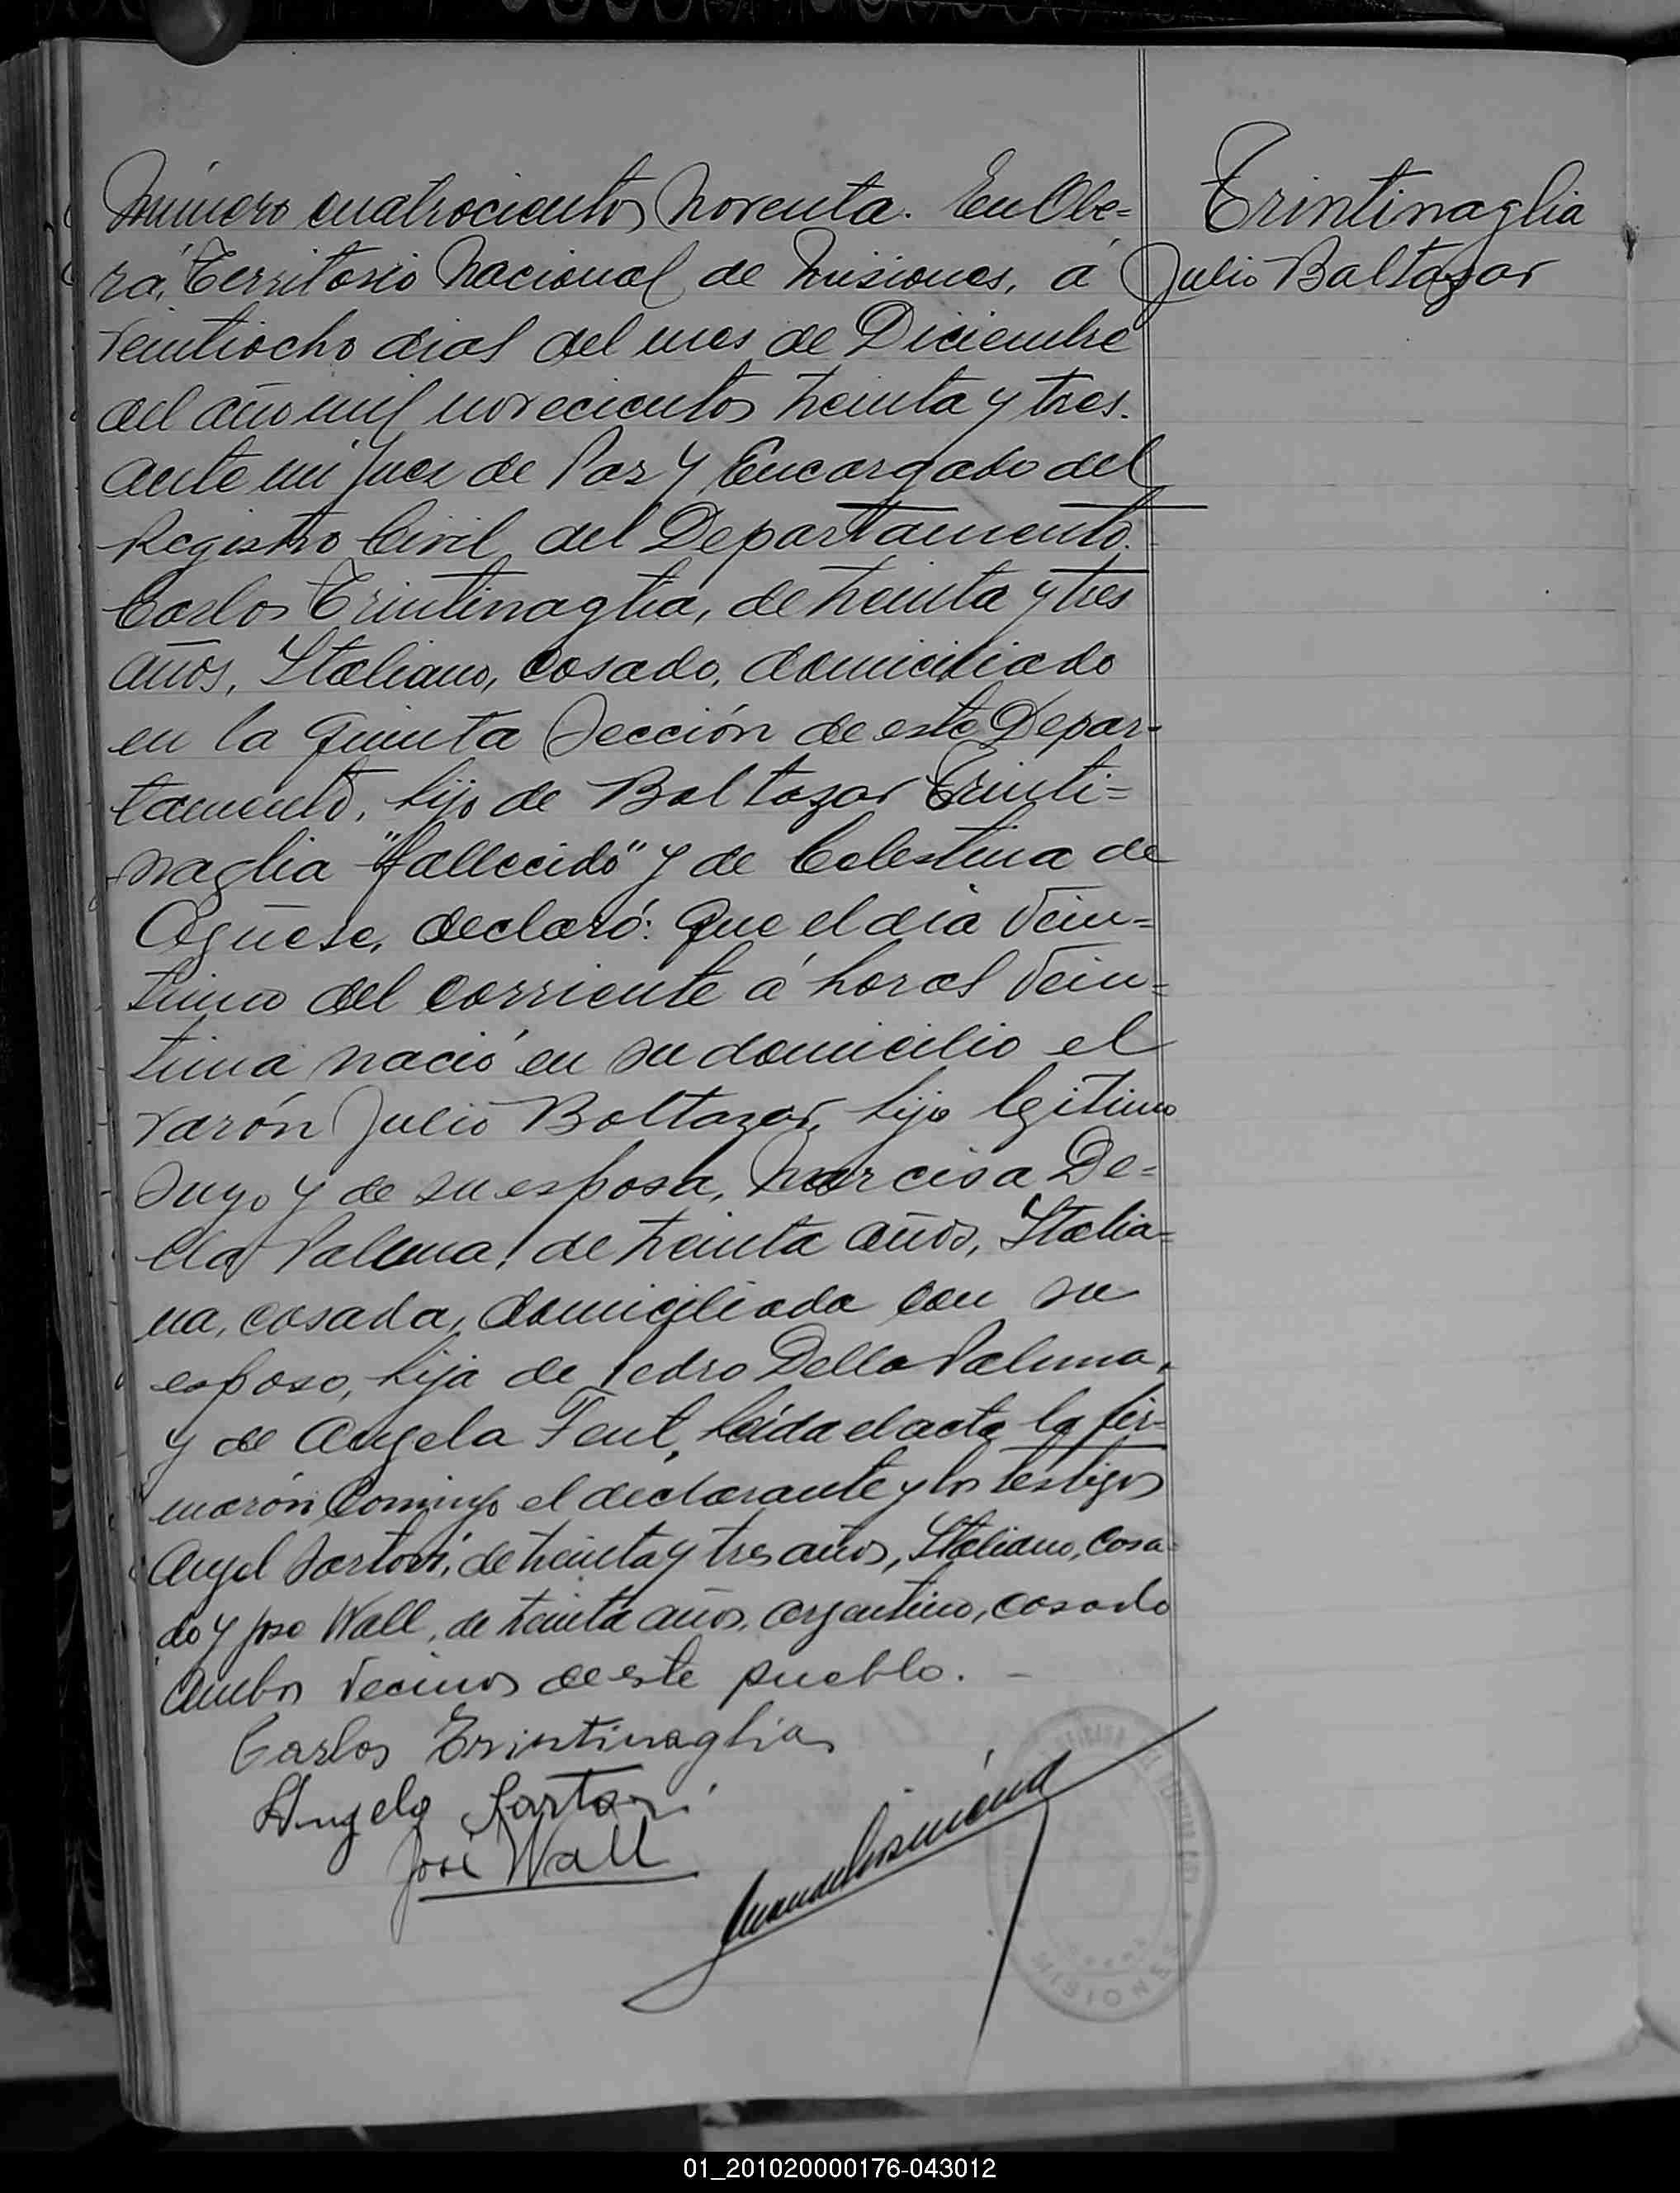 Número cuatrocientos noventa. En Obe=
rá, Territorio Nacional de Misiones, á
veintiocho dias del mes de Diciembre
del año mil novecientos treinta y tres.
ante mi Juez de Paz y Encargado del
Registro Civil del Departamento.
Carlos Trintinaglia, de treinta y tres
años, Italiano, casado, domiciliado
en la quinta Sección de este Depar-
tamento, hijo de Baltazar Trinti=
naglia "fallecido" y de Celestina de
Agnese, declaró: Que el dia Vein=
tiuno del corriente á horas Vein=
tiuna nació en su domicilio el
varón Julio Baltazar, hijo legitimo
suyo y de su esposa, Narcisa De=
lla Palma, de treinta años, Italia=
na, casada, domiciliada con su
esposo, hija de Pedro Della Palma,
y de Angela Tent, leída el acta la fir=
marón Conmigo el declarante y los testigos
Angel Sartori, de treinta y tres años, Italiano, casa=
do y Jose Wall, de treinta años, argentino, casado
ambos vecinos de este pueblo. -
Carlos Trintinaglia
Angelo Sartori
José Wall
Trintinaglia
Julio Baltazar
MISIONES
01_201020000176-043012